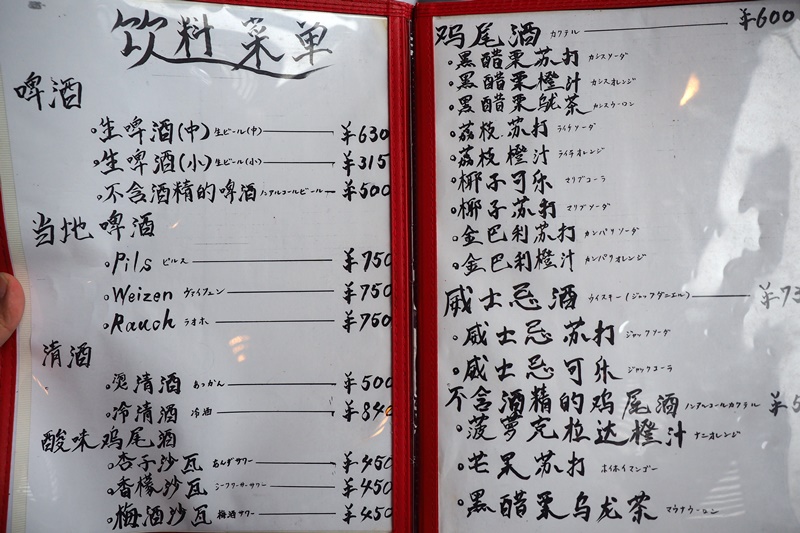 饮料菜单
啤酒
生啤酒(中) 生ビール(中) ¥630
生啤酒(小) 生ビール(小) ¥315
不含酒精的啤酒 ノンアルコールビール ¥500
当地啤酒
Pils ピルス ¥750
Weizen ヴァイツェン ¥750
Rauch ラオホ ¥750
清酒
烫清酒 あつかん ¥500
冷清酒 冷酒 ¥840
酸味鸡尾酒
杏子沙瓦 あんずサワー ¥450
香檬沙瓦 シークワーサーサワー ¥450
梅酒沙瓦 梅酒サワー ¥450
鸡尾酒 カクテル ¥600
黑醋栗苏打 カシスソーダ
黑醋栗橙汁 カシスオレンジ
黑醋栗乌龙茶 カシスウーロン
荔枝苏打 ライチソーダ
荔枝橙汁 ライチオレンジ
椰子可乐 マリブコーラ
椰子苏打 マリブソーダ
金巴利苏打 カンパリソーダ
金巴利橙汁 カンパリオレンジ
威士忌酒 ウイスキー(ジャックダニエル) ¥73
威士忌苏打 ジャックソーダ
威士忌可乐 ジャックコーラ
不含酒精的鸡尾酒 ノンアルコールカクテル ¥5
菠萝克拉达橙汁
芒果苏打 ホイホイマンゴー
黑醋栗乌龙茶